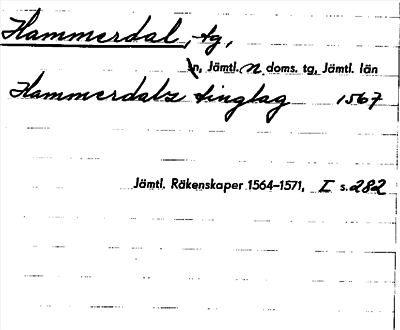 Hammerdal, tg,
sn, Jämtl. N doms. tg, Jämtl. län
Hammerdals tinglag 1567
Jämtl. Räkenskaper 1564–1571, I s. 282